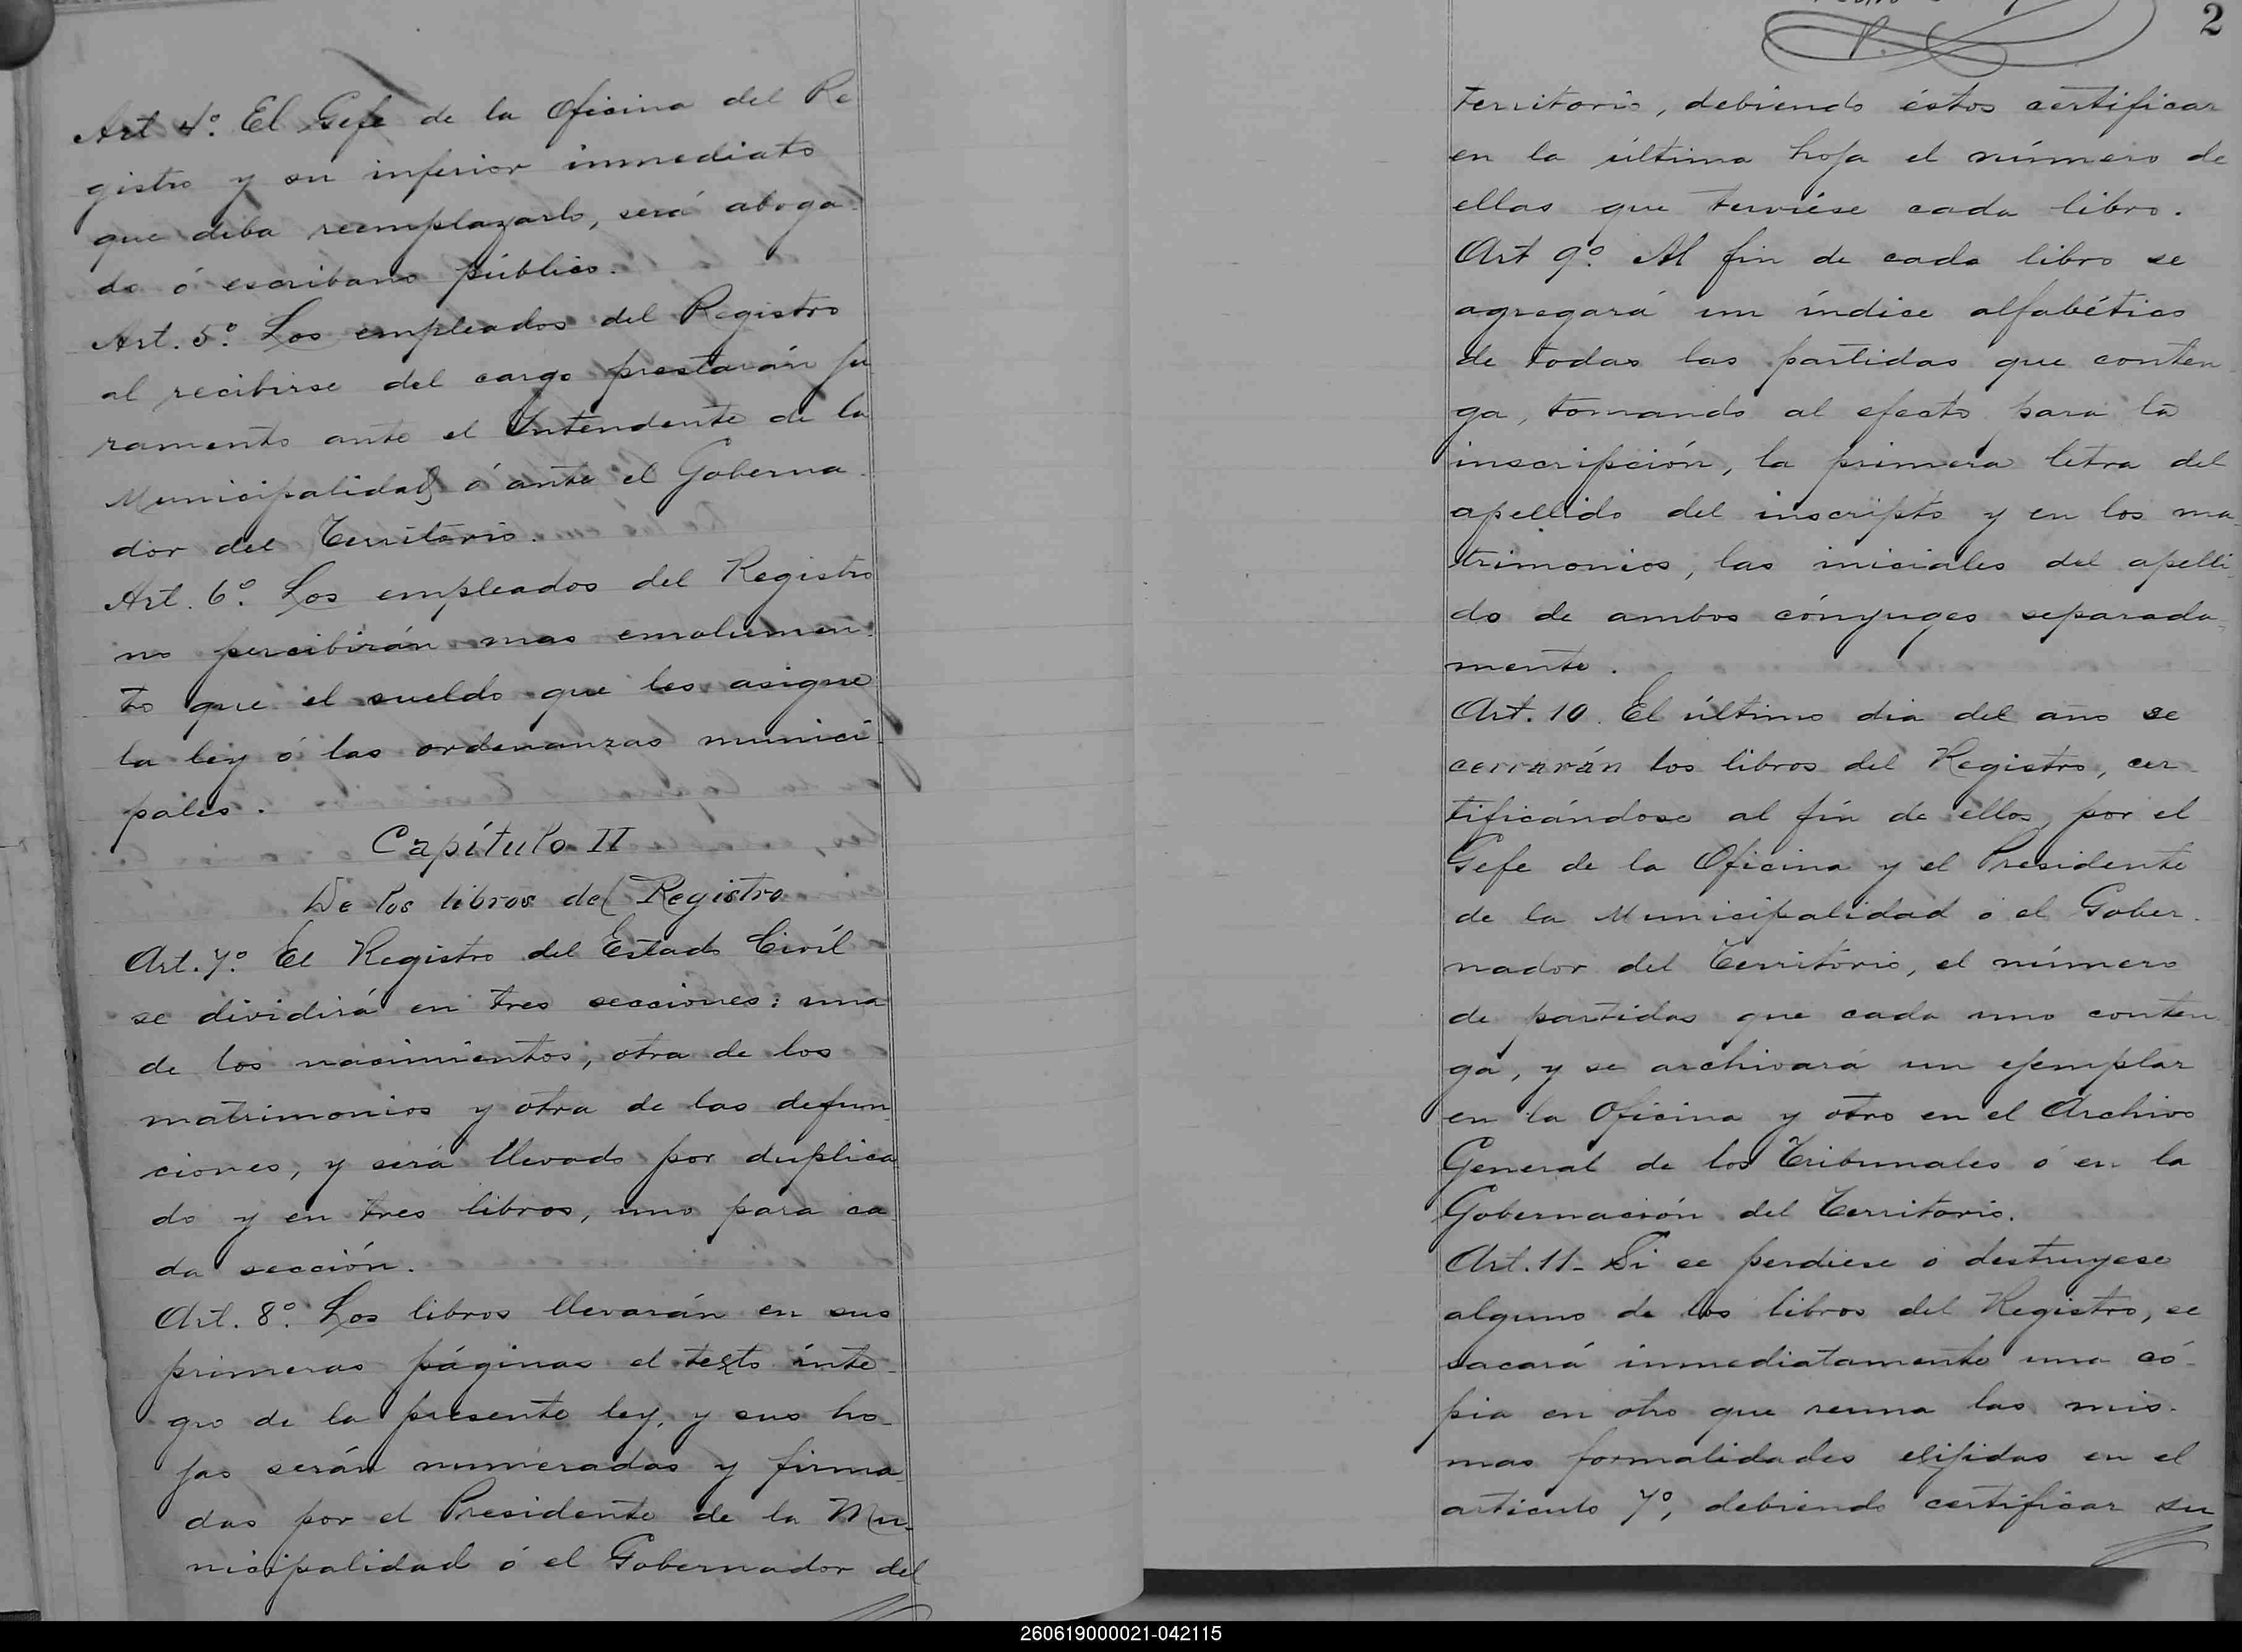 Art 4º. El Gefe de la Oficina del Re
gistro y su inferior immediato
que deba reemplazarlo, será aboga
do ó escribano público.
Art. 5º. Los empleados del Registro
al recibirse del cargo prestarán ju
ramento ante el Intendente de la
Municipalidad ó ante el Goberna
dor del Territorio.
Art. 6º. Los empleados del Registro
no percibirán mas emolumen
to que el sueldo que les asigne
la ley ó las ordenanzas munici
pales.
Capítulo II
De los libros del Registro
Art. 7º. El Registro del Estado Civíl
se dividirá en tres secciones: una
de los nacimientos; otra de los
matrimonios y otra de las defun
ciones, y será llevado por duplica
do y en tres libros, uno para ca
da sección.
Art. 8º. Los libros llevarán en sus
primeras páginas el testo ínte-
gro de la presente ley, y sus ho-
jas serán numeradas y firma
das por el Presidente de la Mu-
nicipalidad ó el Gobernador del
2
territorio, debiendo éstos certificar
en la última hoja el número de
ellas que tuviése cada libro.
Art 9º. Al fin de cada libro se
agregará un índice alfabético
de todas las partidas que conten
ga, tomando al efecto para la
inscripción, la primera letra del
apellido del inscripto y en los ma
trimonios, las iniciales del apelli
do de ambos cónyuges separada-
mente.
Art. 10. El último dia del año se
cerrarán los libros del Registro, cer-
tificándose al fin de ellos, por el
Gefe de la Oficina y el Presidente
de la Municipalidad ó el Gober-
nador del Territorio, el número
de partidas que cada uno conten
ga, y se archivará un ejemplar
en la Oficina y otro en el Archivo
General de los Tribunales ó en la
Gobernación del Territorio.
Art. 11- Si se perdiese ó destruyese
alguno de los libros del Registro, se
sacará inmediatamente una có-
pia en otro que reuna las mis-
mas formalidades exijidas en el
articulo 7º, debiendo certificar su
260619000021-042115